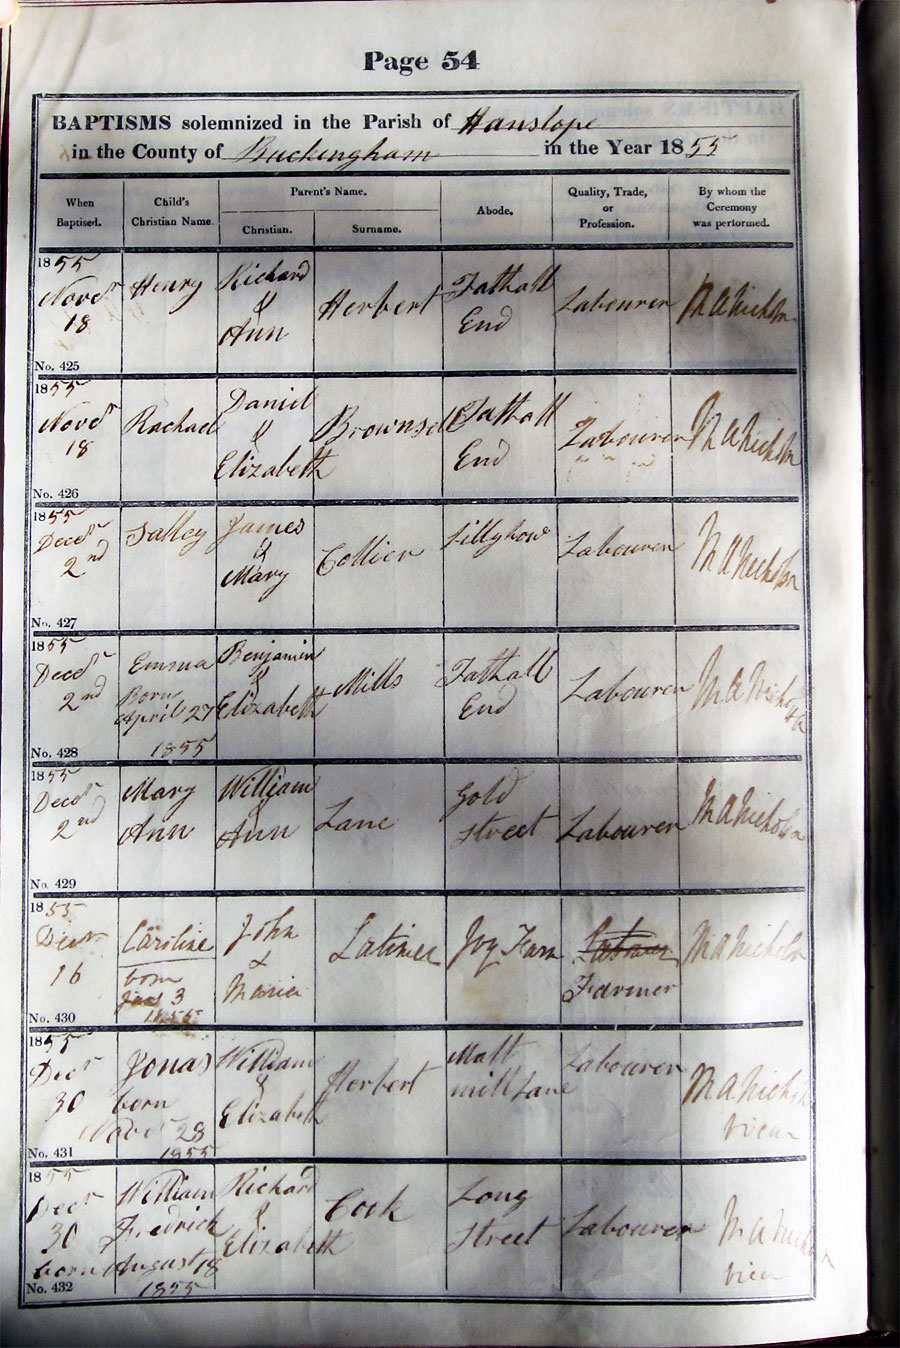 Page 54
BAPTISMS solemnized in the Parish of Hanslope
in the County of Buckingham in the Year 1855
When Baptised.
Child's Christian Name.
Parent's Name.
Christian.
Surname.
Abode.
Quality, Trade, or Profession.
By whom the Ceremony was performed.
1855
Novr 18
No. 425
Henry
Richard
&
Ann
Herbert
Tathall
End
Labourer
M A Nicholson
1855
Novr 18
No. 426
Rachael
Daniel
&
Elizabeth
Brownsell
Tathall
End
Labourer
M A Nicholson
1855
Decr 2nd
No. 427
Salley
James
&
Mary
Collier
Labourer
M A Nicholson
1855
Decr 2nd
No. 428
Emma
Born
April 27
1855
Benjamin
&
Elizabeth
Mills
Tathall
End
Labourer
M A Nicholson
1855
Decr 2nd
No. 429
Mary
Ann
William
&
Ann
Lane
Gold
Street
Labourer
M A Nicholson
1855
Decr 16
No. 430
Caroline
born
3
1855
John
&
Maria
Latimer
Labourer
Farmer
M A Nicholson
1855
Decr 30
No. 431
Jonas
born
Novbr 28
1855
William
&
Elizabeth
Herbert
Malt
mill Lane
Labourer
M A Nicholson
Vicar
1855
Decr 30
No. 432
William
Fredrick
born August 18
1855
Richard
&
Elizabeth
Cook
Long
Street
Labourer
M A Nicholson
Vicar